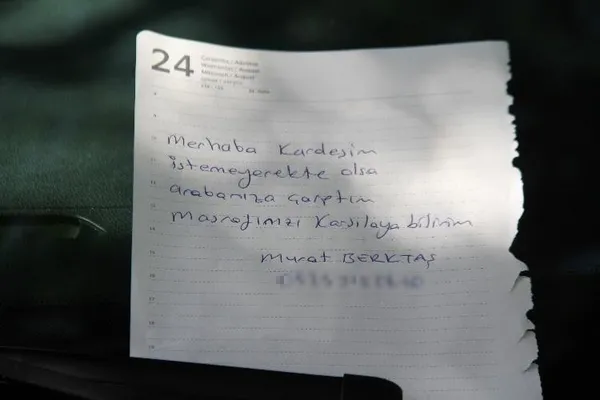 24
Çarşamba / Mittwoch
Merhaba Kardeşim
istemeyerekte olsa
arabanıza çarptım
Masrafınızı Karşılaya bilirim
Murat BERKTAŞ